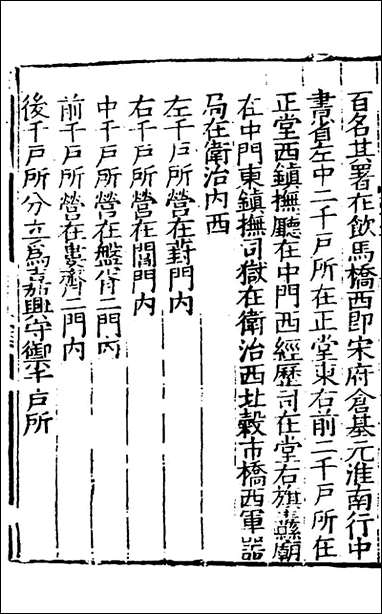 百名其署在飲馬橋西即宋府倉基元淮南行中
書省左中二千戶所在正堂東右前二千戶所在
正堂西鎮撫廳在中門西經歷司在堂右旗纛廟
在中門東鎮撫司獄在衛治西北穀市橋西軍器
局在衛治內西
左千戶所營在葑門內
右千戶所營在閶門內
中千戶所營在盤胥二門內
前千戶所營在婁齊二門內
後千戶所分立爲嘉興守禦千戶所